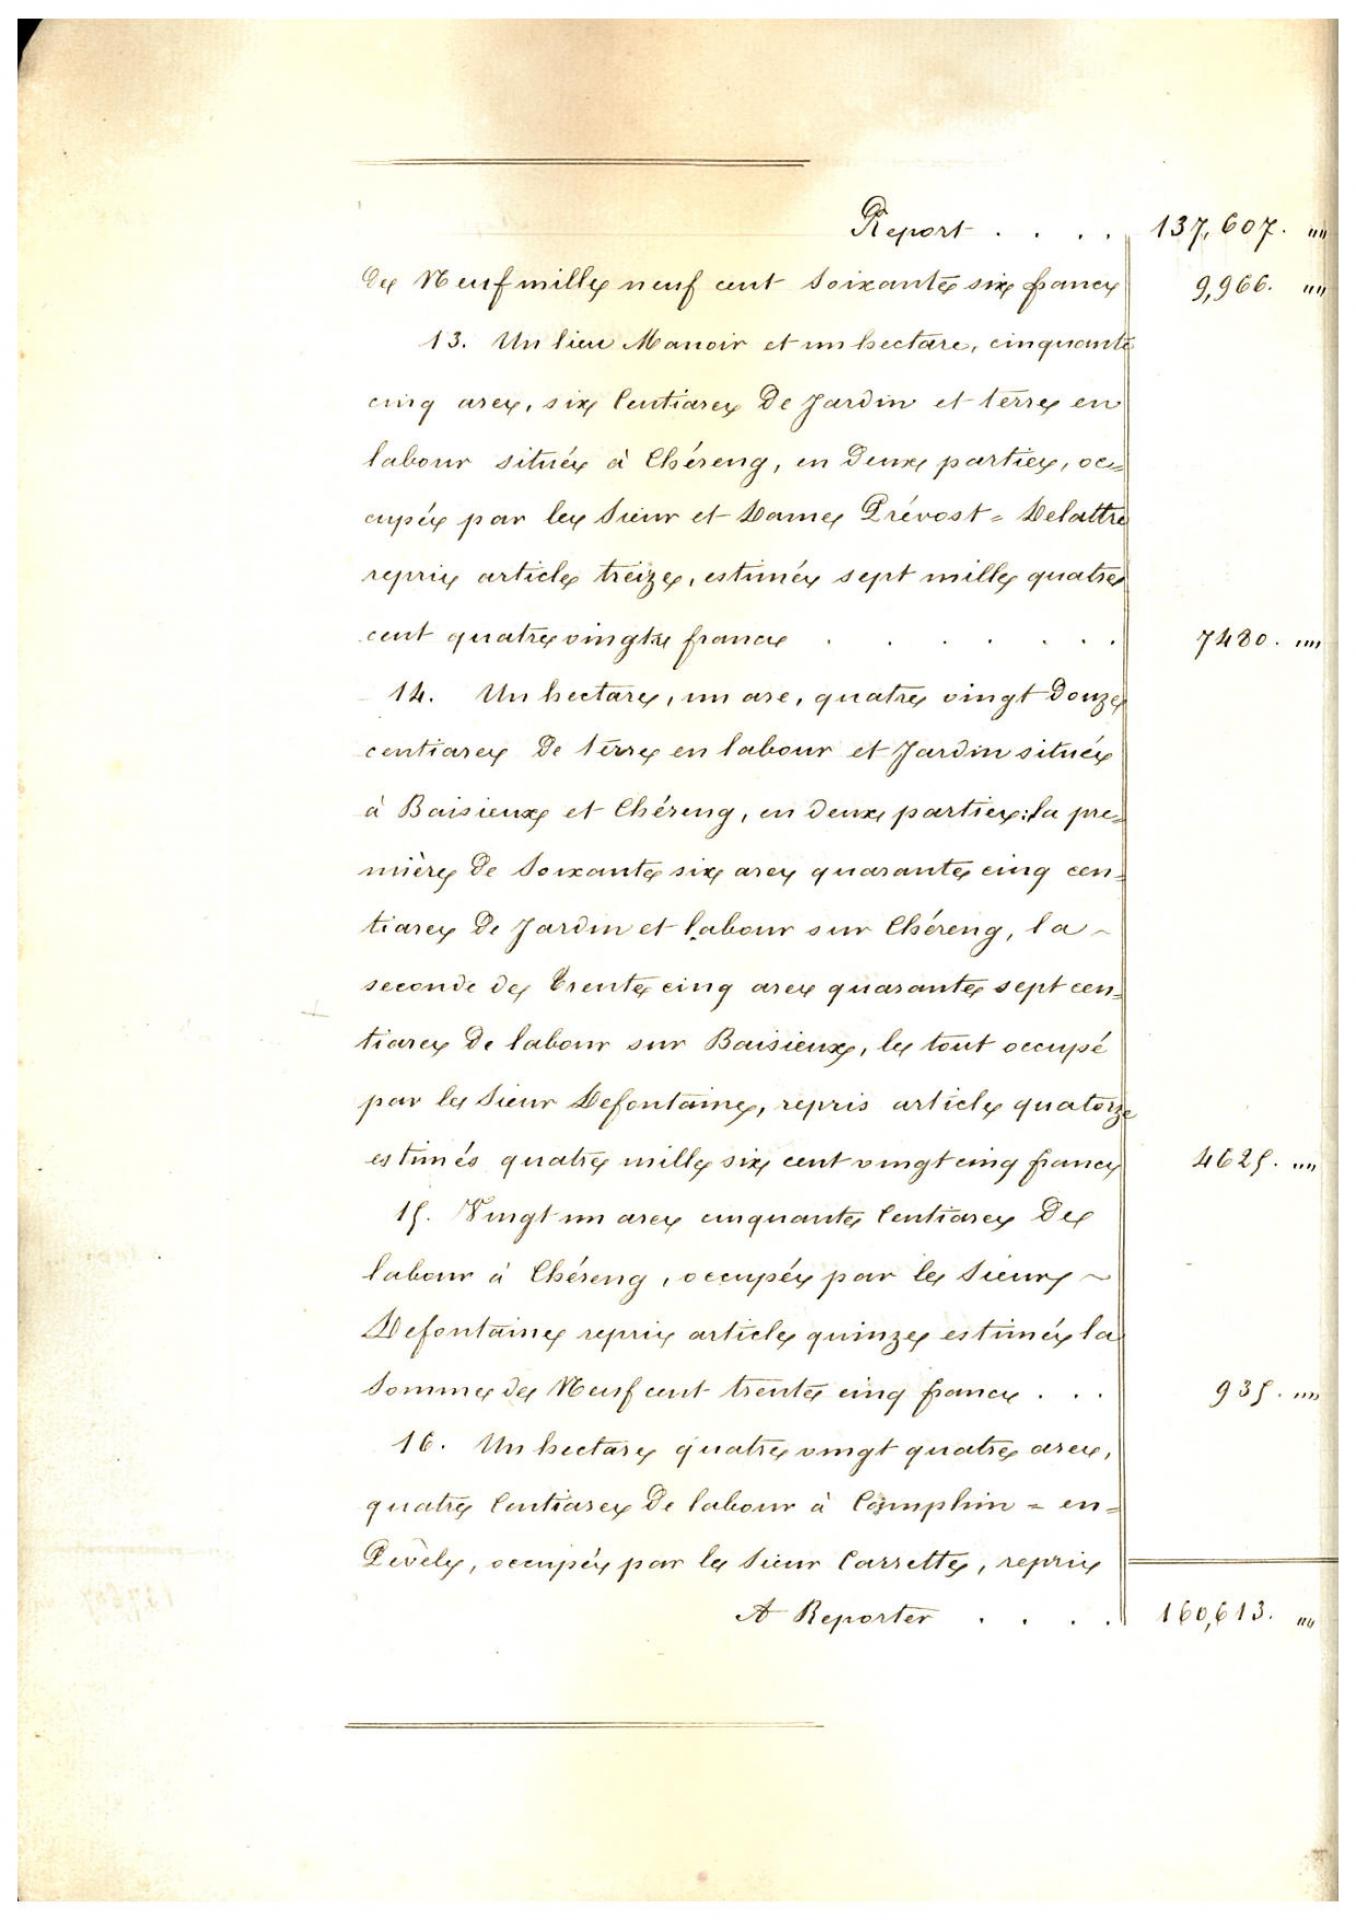 Report . . . . 137,607. „„
de Neuf mille neuf cent Soixante six francs 9,966. „„
13. Un lieu Manoir et un hectare, cinquante
cinq ares, six Centiares De Jardin et terre en
labour située à Chéreng, en Deux parties, oc=
cupée par les Sieur et Dame Prévost = Delattre
repris article treize, estimée sept mille quatre
cent quatre vingts francs . . . . . . 7480. „„
14. Un hectare, un are, quatre vingt Douze
centiares De terre en labour et Jardin située
à Baisieux et Chéreng, en deux parties: la pre=
mière De Soixante six ares quarante cinq cen=
tiares De Jardin et labour sur Chéreng, la ~
seconde de Trente cinq ares quarante sept cen=
tiares De labour sur Baisieux, le tout occupé
par le Sieur Defontaine, repris article quatorze
estimés quatre mille six cent vingt cinq francs 4625. „„
15. Vingt un ares cinquante Centiares De
labour à Chéreng, occupée par le Sieur ~
Defontaine repris article quinze estimée la
Somme de Neuf cent trente cinq francs . . . 935. „„
16. Un hectare quatre vingt quatre ares,
quatre Centiares De labour à Camphin = en =
Pévèle, occupée par le Sieur Carrette, repris
A Reporter . . . . 160,613. „„